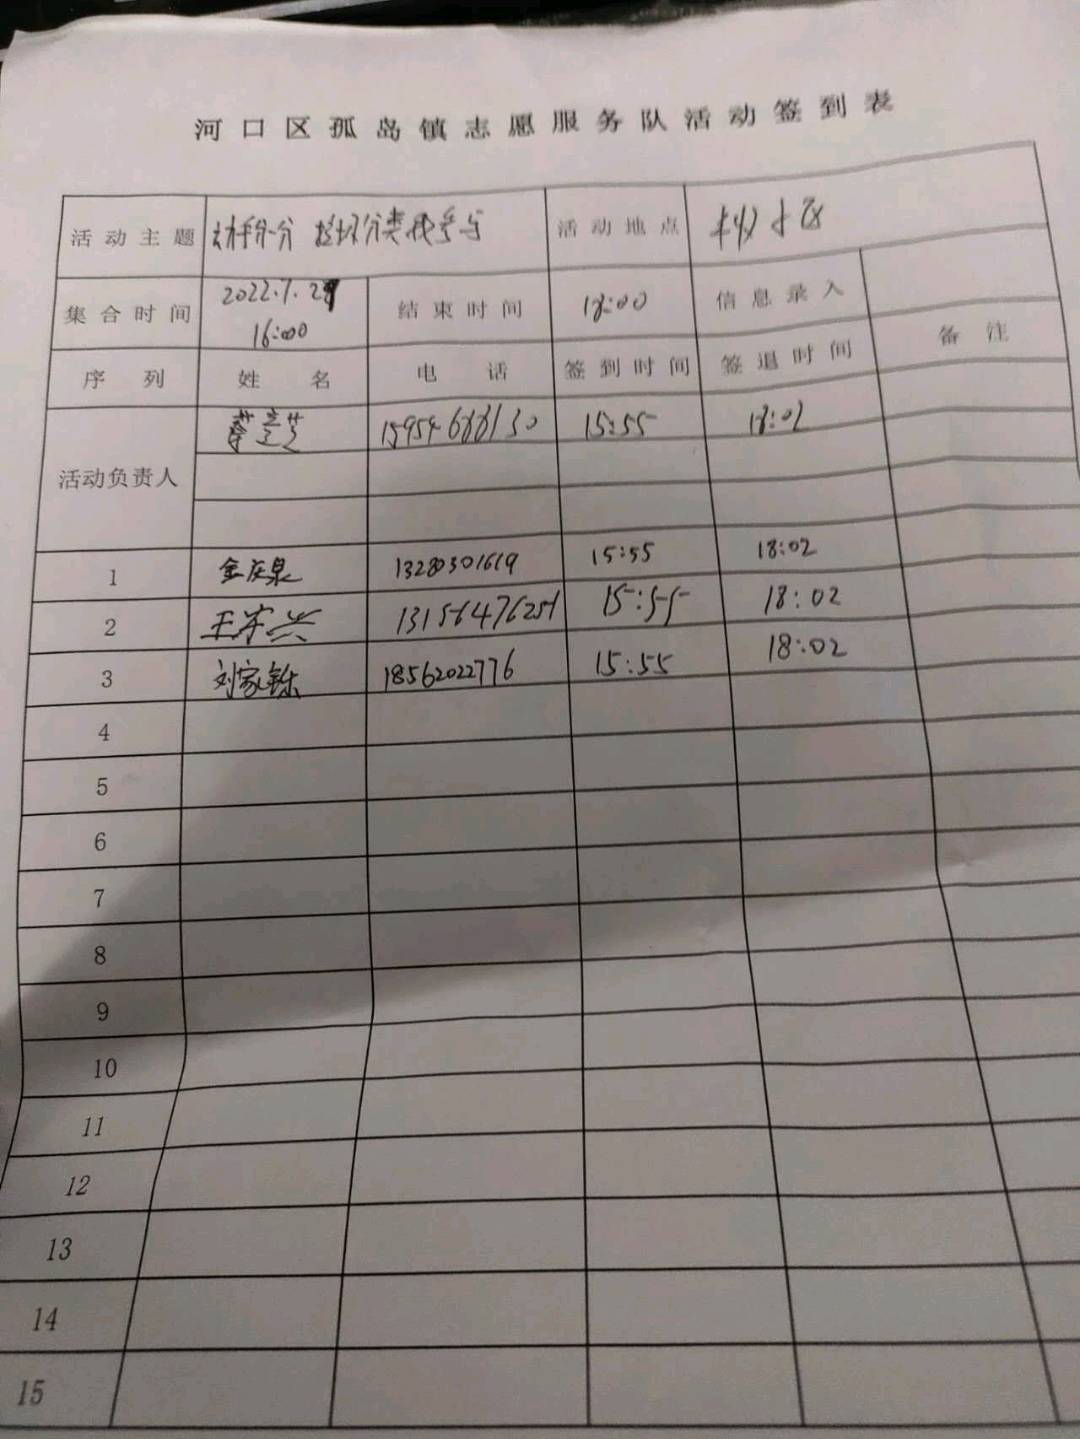 河口区孤岛镇志愿服务队活动签到表
活动主题 垃圾分类我参与 活动地点 小区
集合时间 2022.7.29 16:00 结束时间 18:00 信息录入
序列 姓名 电话 签到时间 签退时间 备注
活动负责人 15954688130 15:55 18:02
1 金庆泉 13280301619 15:55 18:02
2 王宗兴 13156476251 15:55 18:02
3 刘家铄 18562022776 15:55 18:02
4
5
6
7
8
9
10
11
12
13
14
15